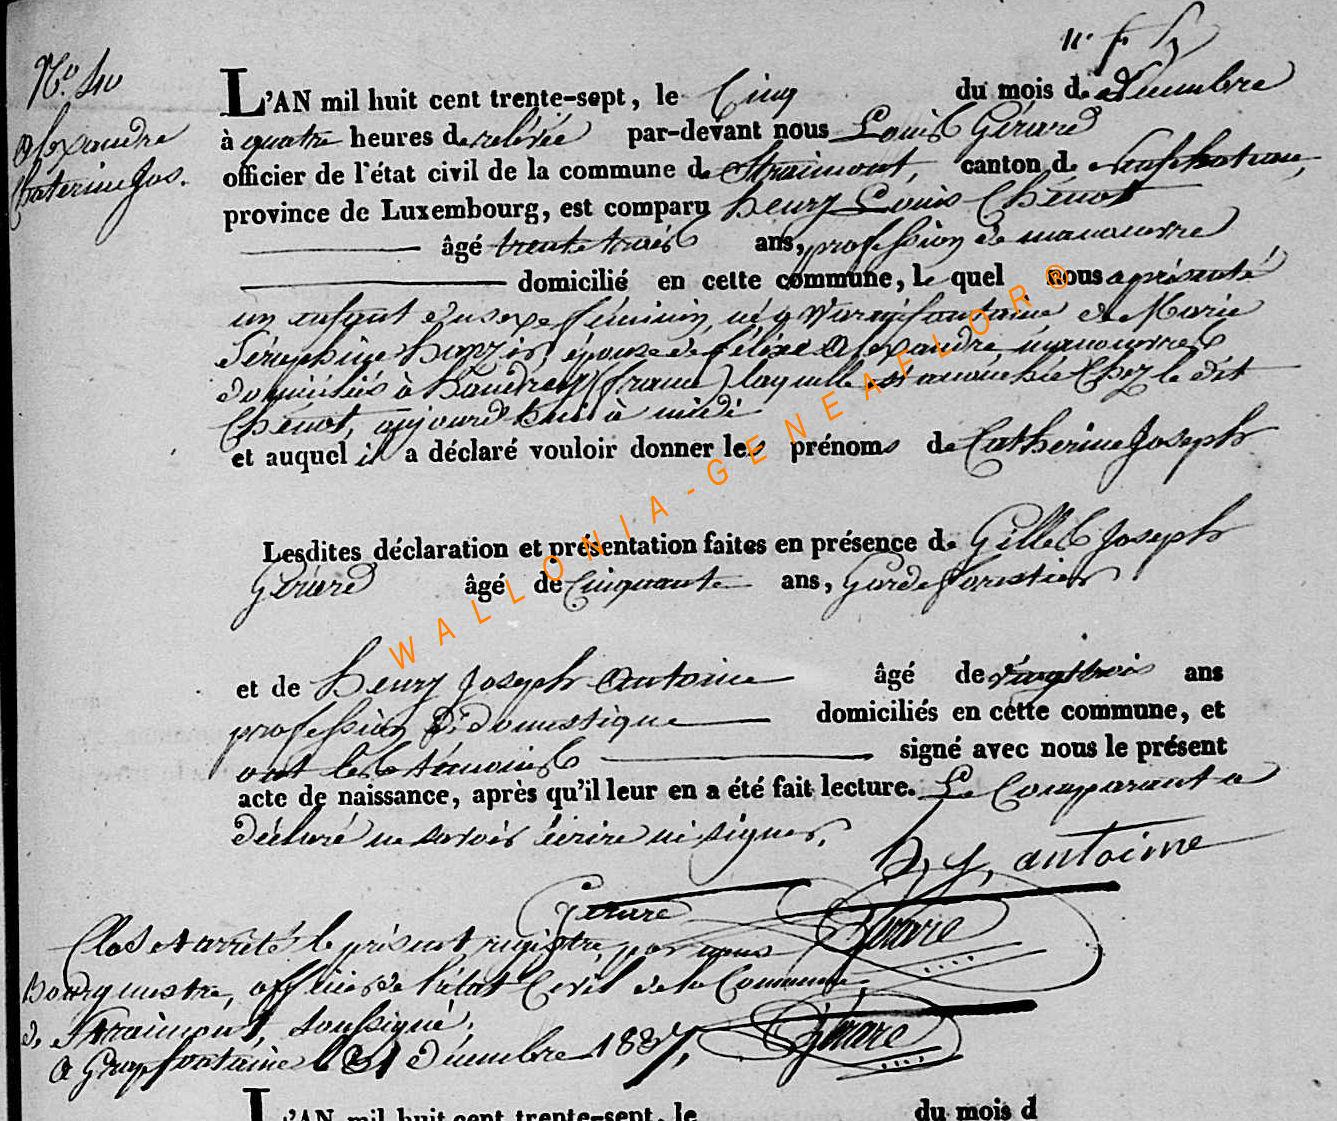 N° 40
Alexandre
Catherine Jos.
n° f 5
L'AN mil huit cent trente-sept, le Cinq du mois de décembre
à quatre heures de relevée par-devant nous Louis Gérard
officier de l'état civil de la commune de Straimont, canton de Neufchateau,
province de Luxembourg, est comparu henry Louis Chenot
âgé trente trois ans, profession de manoeuvre
domicilié en cette commune, le quel nous a présenté
un enfant du sexe féminin, né à Warmifontaine de Marie
Séraphine épouse de félix Alexandre, manoeuvres
domiciliés à (france) laquelle est accouchée chez le dit
Chenot, aujourd'hui à midi
et auquel il a déclaré vouloir donner les prénoms de Catherine Joseph
Lesdites déclaration et présentation faites en présence de Gilles Joseph
Gérard âgé de Cinquante ans, Garde forestier
et de henry Joseph Antoine âgé de vingt trois ans
profession de domestique domiciliés en cette commune, et
ont les témoins signé avec nous le présent
acte de naissance, après qu'il leur en a été fait lecture. Le Comparant a
déclaré ne savoir écrire ni signer.
h, j, antoine
Gerard
Gerard
Clos et arrêté le présent registre, par nous
Bourgmestre, officier de l'état Civil de la Commune
de Straimont, soussigné,
A Grapfontaine le 31 décembre 1837,
Gérard
L'AN mil huit cent trente-sept, le du mois d
WALLONIA-GENEAFLOR®